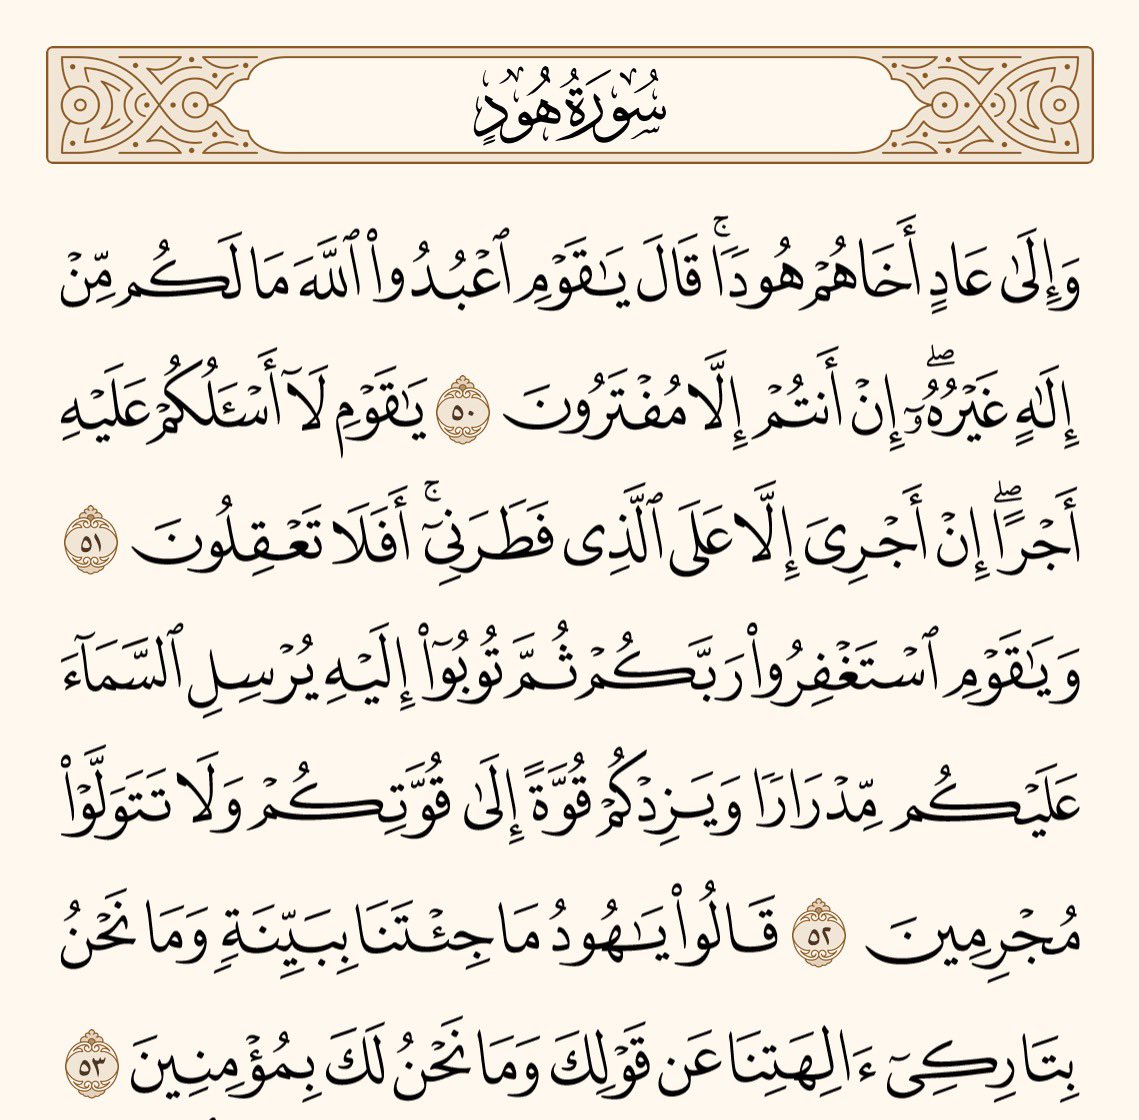 سُورَةُ هُودٍ
وَإِلَىٰ عَادٍ أَخَاهُمْ هُودًاۚ قَالَ يَٰقَوْمِ ٱعْبُدُوا۟ ٱللَّهَ مَا لَكُم مِّنْ
إِلَٰهٍ غَيْرُهُۥٓۖ إِنْ أَنتُمْ إِلَّا مُفْتَرُونَ ٥٠ يَٰقَوْمِ لَآ أَسْـَٔلُكُمْ عَلَيْهِ
أَجْرًاۖ إِنْ أَجْرِىَ إِلَّا عَلَى ٱلَّذِى فَطَرَنِىٓۚ أَفَلَا تَعْقِلُونَ ٥١
وَيَٰقَوْمِ ٱسْتَغْفِرُوا۟ رَبَّكُمْ ثُمَّ تُوبُوٓا۟ إِلَيْهِ يُرْسِلِ ٱلسَّمَآءَ
عَلَيْكُم مِّدْرَارًا وَيَزِدْكُمْ قُوَّةً إِلَىٰ قُوَّتِكُمْ وَلَا تَتَوَلَّوْا۟
مُجْرِمِينَ ٥٢ قَالُوا۟ يَٰهُودُ مَا جِئْتَنَا بِبَيِّنَةٍ وَمَا نَحْنُ
بِتَارِكِىٓ ءَالِهَتِنَا عَن قَوْلِكَ وَمَا نَحْنُ لَكَ بِمُؤْمِنِينَ ٥٣